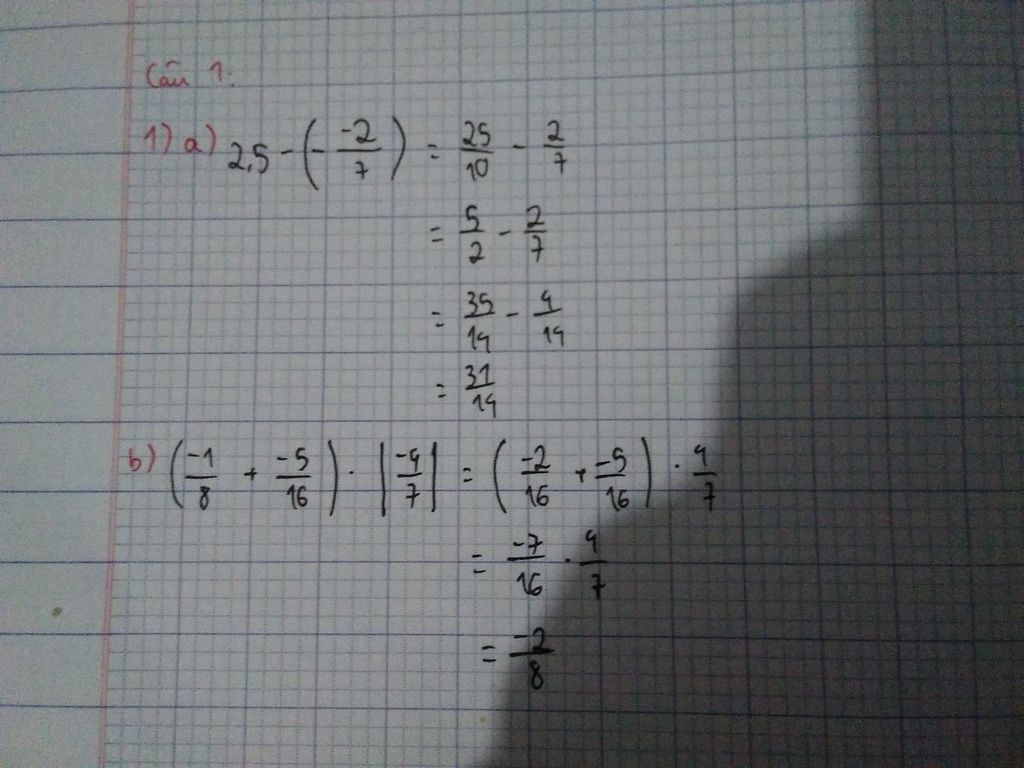 Câu 1:
1) a) 2,5 - (- \frac{-2}{7}) = \frac{25}{10} - \frac{2}{7}
= \frac{5}{2} - \frac{2}{7}
= \frac{35}{14} - \frac{4}{14}
= \frac{31}{14}
b) (\frac{-1}{8} + \frac{-5}{16}) \cdot |\frac{-4}{7}| = (\frac{-2}{16} + \frac{-5}{16}) \cdot \frac{4}{7}
= \frac{-7}{16} \cdot \frac{4}{7}
= \frac{-2}{8}